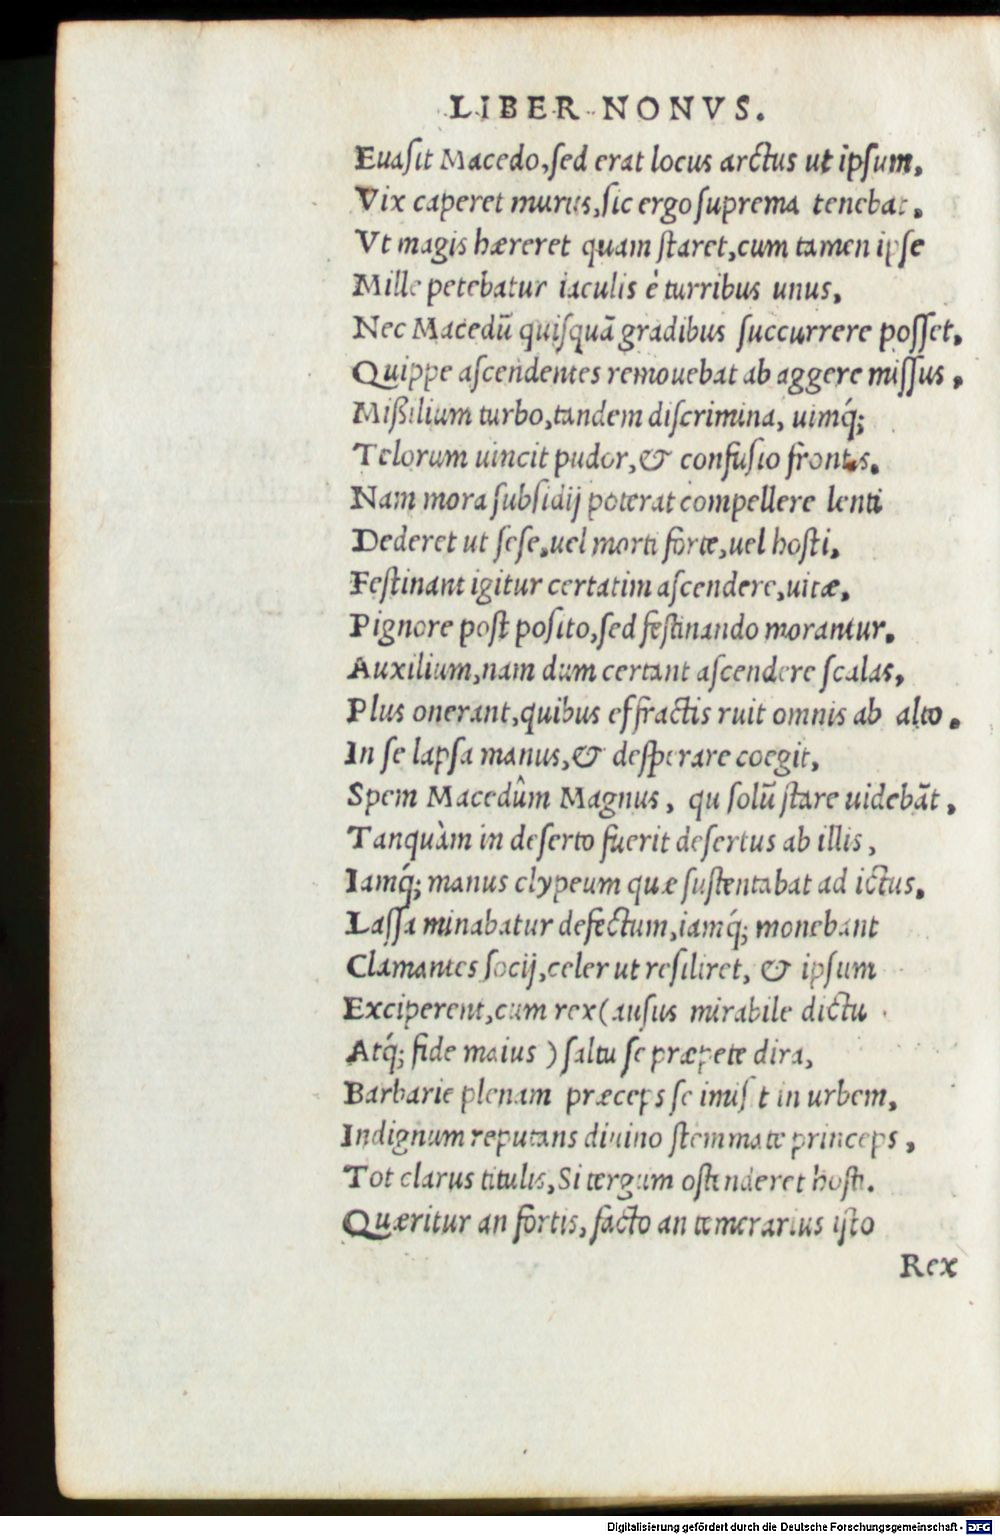 LIBER NONVS.
Euaſit Macedo,ſed erat locus arctus ut ipſum,
Vix caperet murus,ſic ergo ſuprema tenebat.
Vt magis hæreret quam ſtaret,cum tamen ipſe
Mille petebatur iaculis è turribus unus,
Nec Macedũ quiſquã gradibus ſuccurrere poſſet,
Quippe aſcendentes remouebat ab aggere miſſus,
Mißilium turbo,tandem diſcrimina, uimq́;
Telorum uincit pudor,& confuſio frontis.
Nam mora ſubſidij poterat compellere lenti
Dederet ut ſeſe,uel morti forte,uel hoſti,
Feſtinant igitur certatim aſcendere,uitæ,
Pignore poſt poſito,ſed feſtinando morantur.
Auxilium,nam dum certant aſcendere ſcalas,
Plus onerant,quibus effractis ruit omnis ab alto.
In ſe lapſa manus,& deſperare coegit,
Spem Macedûm Magnus, qu ſolũ ſtare uidebãt,
Tanquàm in deſerto fuerit deſertus ab illis,
Iamq́; manus clypeum quæ ſuſtentabat ad ictus.
Laſſa minabatur defectum,iamq́; monebant
Clamantes ſocij,celer ut reſiliret, & ipſum
Exciperent,cum rex(auſus mirabile dictu
Atq́; fide maius ) ſaltu ſe præpete dira,
Barbarie plenam præceps ſe imiſ t in urbem,
Indignum reputans diuino ſtemmate princeps,
Tot clarus titulis,Si tergum oſtenderet hoſti.
Quæritur an fortis,facto an temerarius iſto
Rex
Digitalisierung gefördert durch die Deutsche Forschungsgemeinschaft - DFG